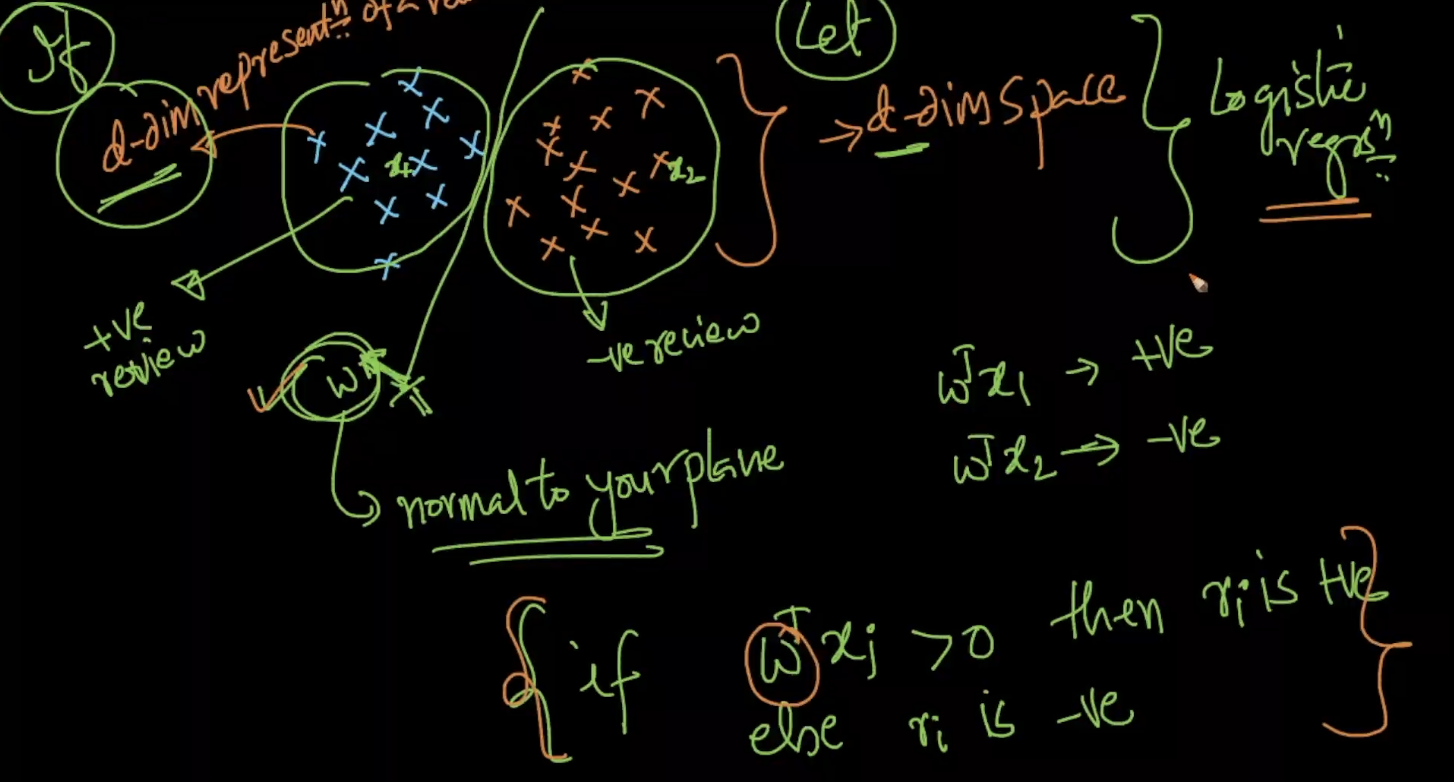 If
d-dim representⁿ of a
Let
→ d-dim space
Logistic
regrsⁿ
x₁
x₂
+ve
review
-ve review
w
normal to your plane
wᵀx₁ → +ve
wᵀx₂ → -ve
if wᵀxi > 0 then ri is +ve
else ri is -ve